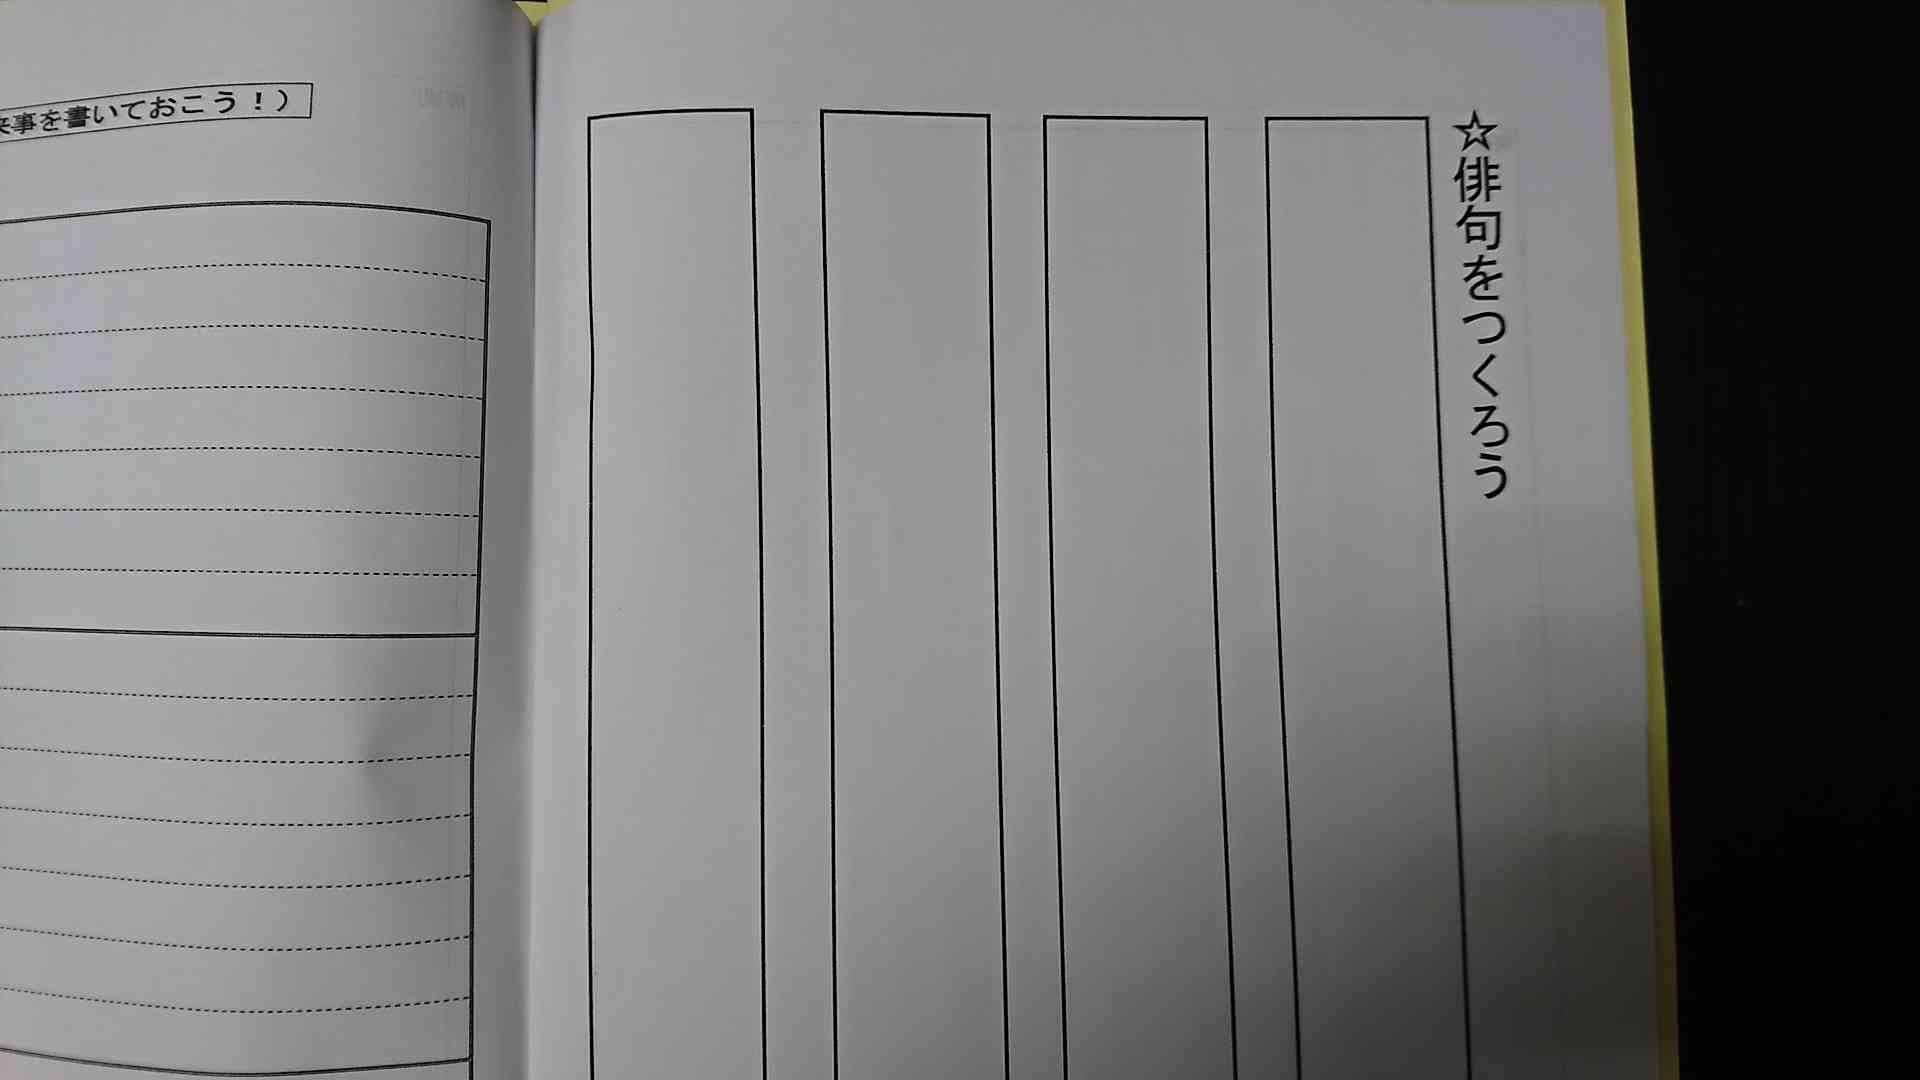 ☆俳句をつくろう
事を書いておこう！）